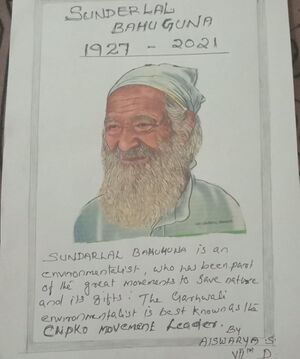 SUNDERLAL
BAHUGUNA
1927 - 2021
SUNDARLAL BAHUHUNA is an
environmentalist, who has been part
of the great movements to save nature
and its gifts. The Garhwali
environmentalist is best known as the
CHIPKO MOVEMENT Leader.
By
AISWARYA S.
VIIth D